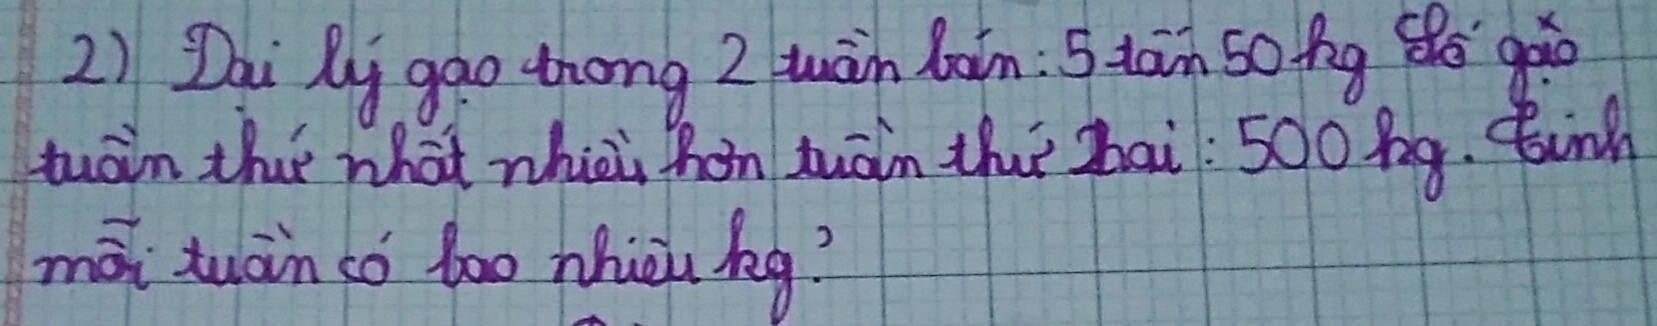 2) Đại lý gạo trong 2 tuần bán: 5 tấn 50 kg Số gạo
tuần thứ nhất nhiều hơn tuần thứ hai: 500 kg. Tính
mỗi tuần có bao nhiêu kg?